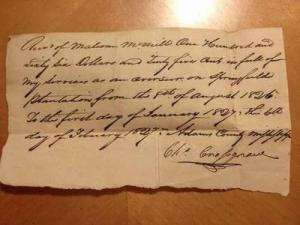 Recd of Malcom McNeill One Hundred and
Sixty Six Dollars and Sixty five Cents in full of
my services as an overseer on Springfield
Plantation from the 8th of August 1826
To the first day of January 1827, this 6th
day of February 1827 Adams County Mississippi
Chs